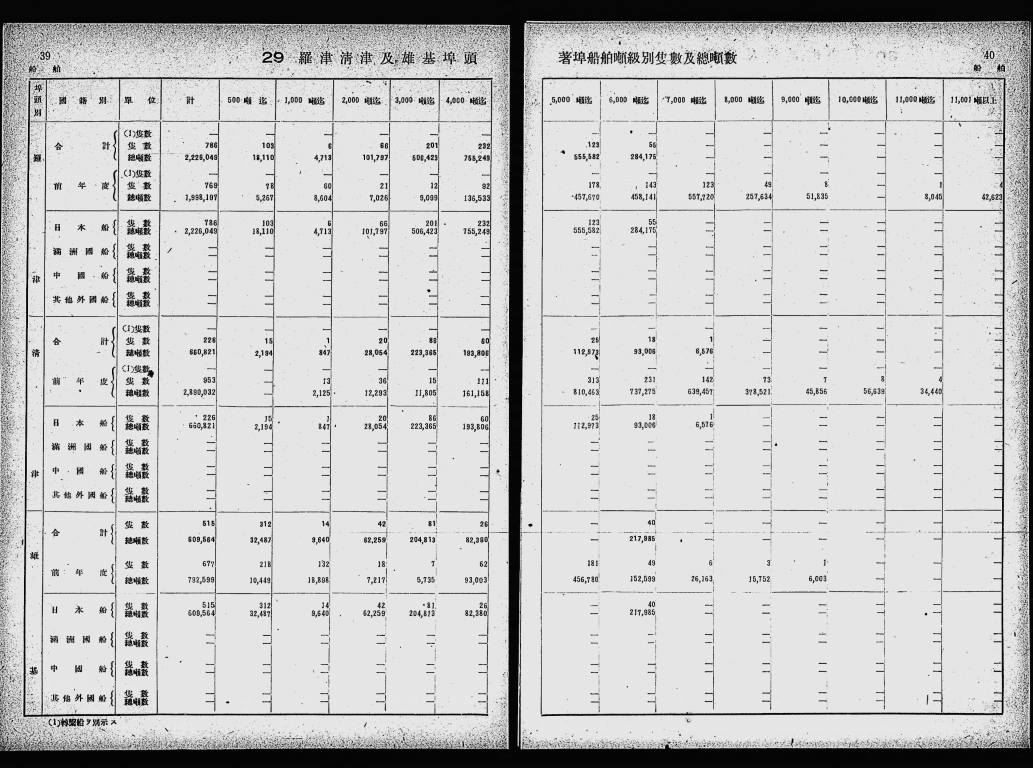 39
船舶
29 羅津清津及雄基埠頭
埠頭別 國籍別 單位 計 500噸迄 1,000噸迄 2,000噸迄 3,000噸迄 4,000噸迄
羅津
合計 (1)隻數 — — — — — —
隻數 786 103 6 66 201 232
總噸數 2,226,049 18,110 4,713 101,797 506,423 755,249
前年度 (1)隻數 — — — — — —
隻數 769 78 60 21 12 92
總噸數 1,998,197 5,267 8,604 7,026 9,099 136,533
日本船 隻數 786 103 6 66 201 232
總噸數 2,226,049 18,110 4,713 101,797 506,423 755,249
滿洲國船 隻數 — — — — — —
總噸數 — — — — — —
中國船 隻數 — — — — — —
總噸數 — — — — — —
其他外國船 隻數 — — — — — —
總噸數 — — — — — —
清津
合計 (1)隻數 — — — — — —
隻數 226 15 1 20 86 60
總噸數 660,821 2,194 847 28,054 223,365 193,806
前年度 (1)隻數 — — — — — —
隻數 953 — 13 36 15 111
總噸數 2,880,032 — 2,125 12,293 11,805 161,158
日本船 隻數 226 15 1 20 86 60
總噸數 660,821 2,194 847 28,054 223,365 193,806
滿洲國船 隻數 — — — — — —
總噸數 — — — — — —
中國船 隻數 — — — — — —
總噸數 — — — — — —
其他外國船 隻數 — — — — — —
總噸數 — — — — — —
雄基
合計 隻數 515 312 14 42 81 26
總噸數 609,564 32,487 9,640 62,259 204,813 82,380
前年度 隻數 677 218 132 18 7 62
總噸數 792,599 10,449 18,898 7,217 5,735 93,003
日本船 隻數 515 312 14 42 81 26
總噸數 609,564 32,487 9,640 62,259 204,813 82,380
滿洲國船 隻數 — — — — — —
總噸數 — — — — — —
中國船 隻數 — — — — — —
總噸數 — — — — — —
其他外國船 隻數 — — — — — —
總噸數 — — — — — —
40
船舶
著埠船舶噸級別隻數及總噸數
5,000噸迄 6,000噸迄 7,000噸迄 8,000噸迄 9,000噸迄 10,000噸迄 11,000噸迄 11,001噸以上
— — — — — — — —
123 55 — — — — — —
555,582 284,175 — — — — — —
— — — — — — — —
178 143 123 49 8 — 1 4
457,670 458,141 557,720 257,634 51,835 — 8,045 42,623
123 55 — — — — — —
555,582 284,175 — — — — — —
— — — — — — — —
— — — — — — — —
— — — — — — — —
— — — — — — — —
— — — — — — — —
— — — — — — — —
— — — — — — — —
25 18 1 — — — — —
112,973 93,006 6,576 — — — — —
— — — — — — — —
313 231 142 73 7 8 4 —
810,463 737,275 639,457 378,521 45,856 56,639 34,440 —
25 18 1 — — — — —
112,973 93,006 6,576 — — — — —
— — — — — — — —
— — — — — — — —
— — — — — — — —
— — — — — — — —
— — — — — — — —
— — — — — — — —
— 40 — — — — — —
— 217,985 — — — — — —
181 49 6 3 1 — — —
456,780 152,599 26,163 15,752 6,003 — — —
— 40 — — — — — —
— 217,985 — — — — — —
— — — — — — — —
— — — — — — — —
— — — — — — — —
— — — — — — — —
— — — — — — — —
— — — — — — — —